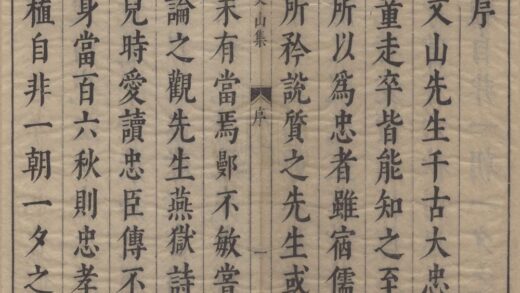 序
文山先生千古大忠
童走卒皆能知之至
所以爲忠者雖宿儒
所矜說質之先生或
文山集 序 一
未有當焉鄤不敏嘗
論之觀先生燕獄詩
兒時愛讀忠臣傳不
身當百六秋則忠孝
植自非一朝一夕之